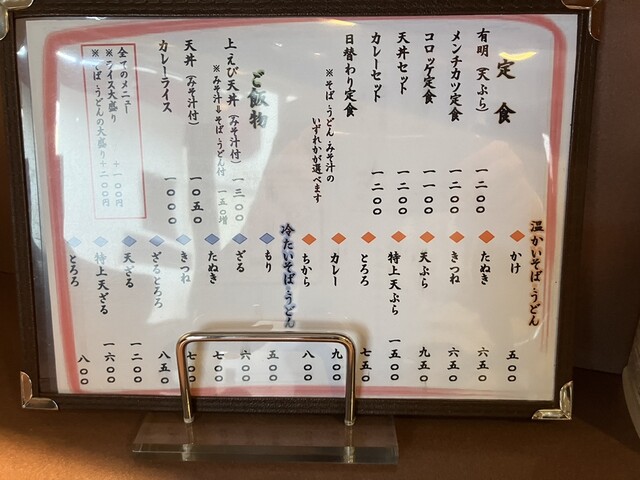 定食
有明(天ぷら) 一二〇〇
メンチカツ定食 一二〇〇
コロッケ定食 一一〇〇
天丼セット 一二〇〇
カレーセット 一二〇〇
日替わり定食
※そば・うどん・みそ汁の
いずれかが選べます
ご飯物
上えび天丼(みそ汁付) 一三〇〇
※みそ汁⇒そば・うどん付 一五〇増
天丼(みそ汁付) 一〇五〇
カレーライス 一〇〇〇
全てのメニュー
※ライス大盛り +一〇〇円
※そば・うどんの大盛り+二〇〇円
温かいそば・うどん
かけ 五〇〇
たぬき 六五〇
きつね 六五〇
天ぷら 九五〇
特上天ぷら 一五〇〇
とろろ 七五〇
カレー 九〇〇
ちから 八〇〇
冷たいそば・うどん
もり 五〇〇
ざる 六〇〇
たぬき 七〇〇
きつね 七〇〇
ざるとろろ 八五〇
天ざる 一二〇〇
特上天ざる 一六〇〇
とろろ 八〇〇